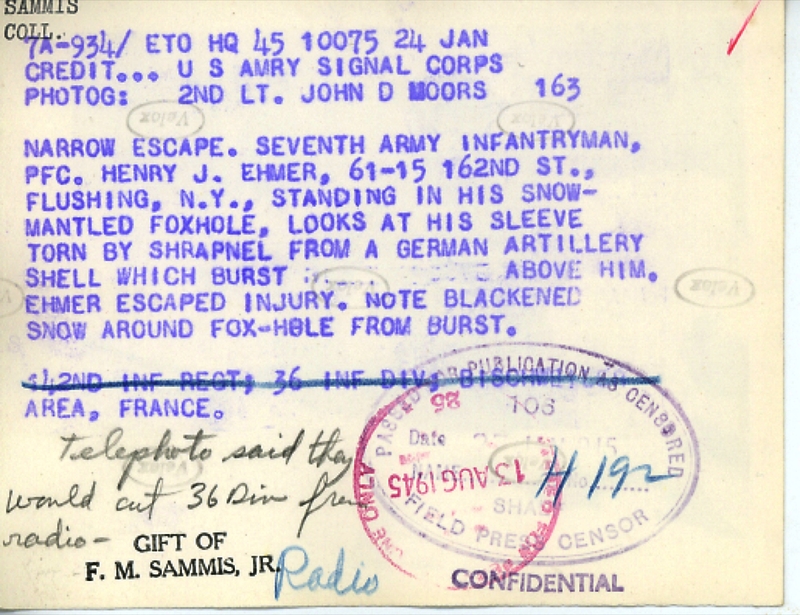 SAMMIS
COLL.
7A-934/ ETO HQ 45 10075 24 JAN
CREDIT... U S AMRY SIGNAL CORPS
PHOTOG: 2ND LT. JOHN D MOORS 163
Velox Velox
NARROW ESCAPE. SEVENTH ARMY INFANTRYMAN,
PFC. HENRY J. EHMER, 61-15 162ND ST.,
FLUSHING, N.Y., STANDING IN HIS SNOW-
MANTLED FOXHOLE, LOOKS AT HIS SLEEVE
TORN BY SHRAPNEL FROM A GERMAN ARTILLERY
SHELL WHICH BURST ABOVE HIM.
Velox Velox
EHMER ESCAPED INJURY. NOTE BLACKENED
SNOW AROUND FOX-HOLE FROM BURST.
142ND INF REGT; 36 INF DIV;
AREA, FRANCE.
PASSED FOR PUBLICATION AS CENSORED
108
Date
13 AUG 1945
H 192
FIELD PRESS CENSOR
Telephoto said they
would cut 36 Div from
radio-
GIFT OF
F. M. SAMMIS, JR.
Radio
CONFIDENTIAL